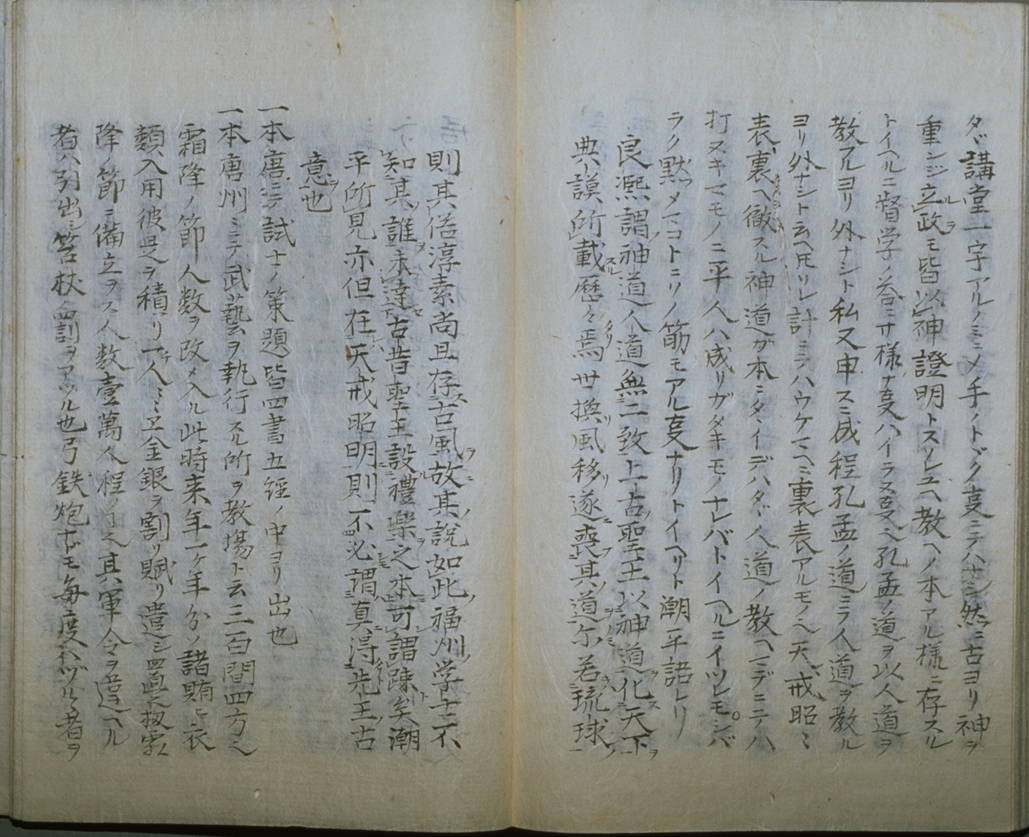 タヾ講堂一宇アルノミニメ手ノトヾク支ニテハナシ然ニ古ヨリ神ヲ
重ンジ立政モ皆以神證明トスルユヘ教ヘノ本アル様ニ存スル
トイヘルニ督学ノ答ニサ様ナ支ハイラヌ支ヘ孔孟ノ道ヲ以人道ヲ
教フルヨリ外ナシト私又申スニ成程孔孟ノ道ニヲイ人道ヲ教ル
ヨリ外ナシト云ヘ圧ソレ計ニテハウケマヘニ裏表アルモノヘ天戒昭々
表裏ヘ徹スル神道ガ本ニタヽイデハタヾノ人道ノ教ヘ一デニテハ
打ヌキマモノニ平人ハ成リガタキモノナレバトイヘルニイツレモシバ
ラク黙ソメマコトニソノ筋モアル支ナリトイヘリト潮平語レリ
良熙謂神道人道無二致上古聖王以神道化天下
典謨所載歴々焉世換風移遂喪其道尓若琉球
則其俗淳素尚且存古風故其説如此福州学士不
知其誰未達古昔聖王設禮樂之本可謂疎矣潮
平所見亦但在天戒昭明則不必謂真得先王古
意也
一本唐ニテ試士ノ策題皆四書五経ノ中ヨリ出也
一本唐州ミニテ武藝ヲ執行スル所ヲ教場ト云三百間四方ヘ
霜降ノ節人数ヲ改メ入ル此時来年一ケ年分ノ諸賄ヒ衣
類入用彼是ヲ積リ一人ミニ金銀ヲ割リ賦リ遣シ置扨霜
降ノ節ニ備立ヲス人数壹萬人程ノ由ヘ其軍令ヲ違ヘル
者ハ引出シ笞杖ノ罰ヲアツル也弓鉄炮ナドモ毎度ハヅルヽ者ヲ